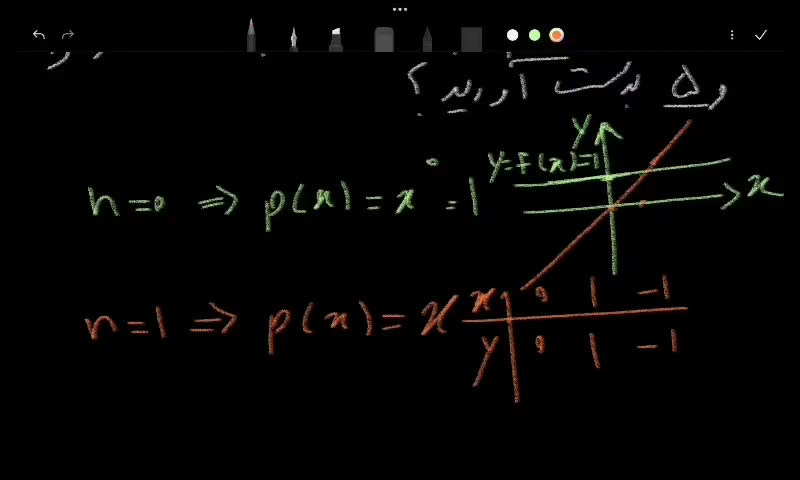 و ۵ بدست آورید؟
y
y=f(x)=1
x
n=0 ⇒ p(x)=x⁰=1
n=1 ⇒ p(x)=x
x 0 1 -1
y 0 1 -1